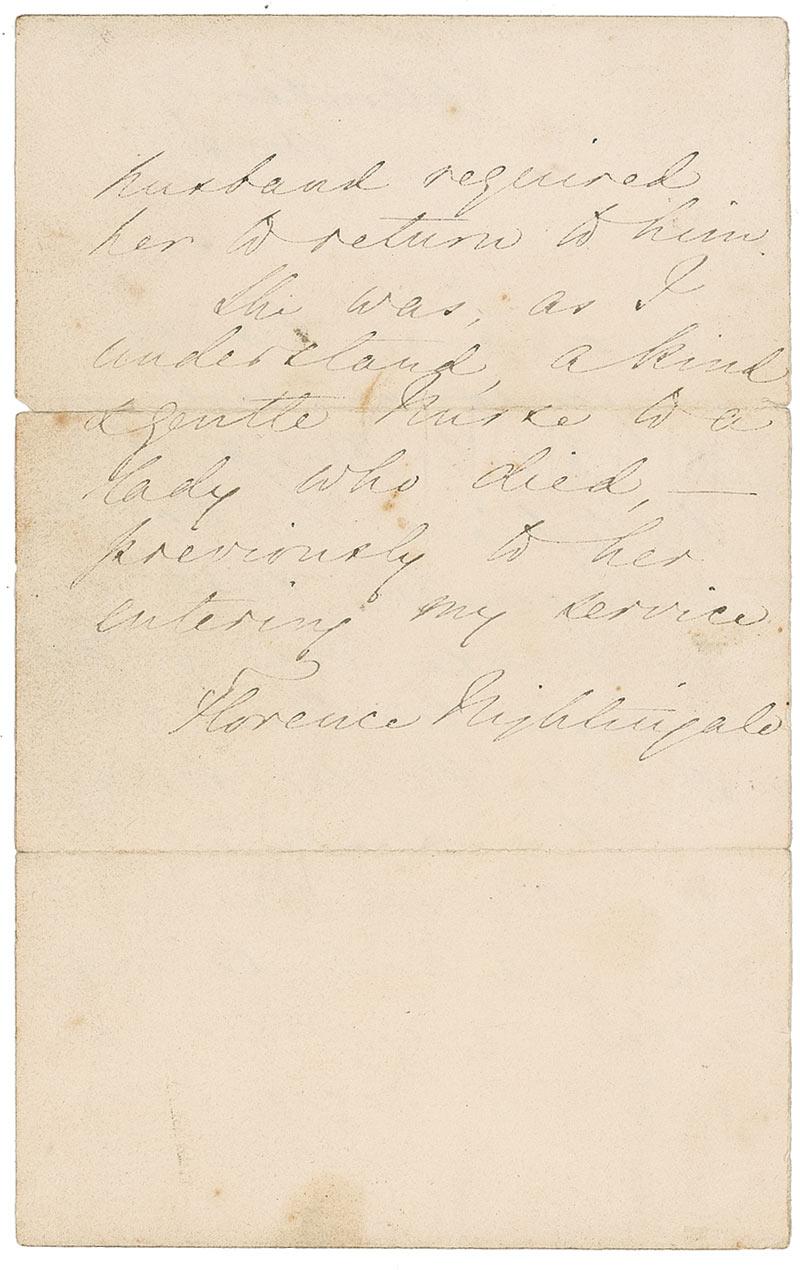 husband required
her to return to him.
She was, as I
understand, a kind
& gentle Nurse to a
lady who died, —
previously to her
entering my service
Florence Nightingale